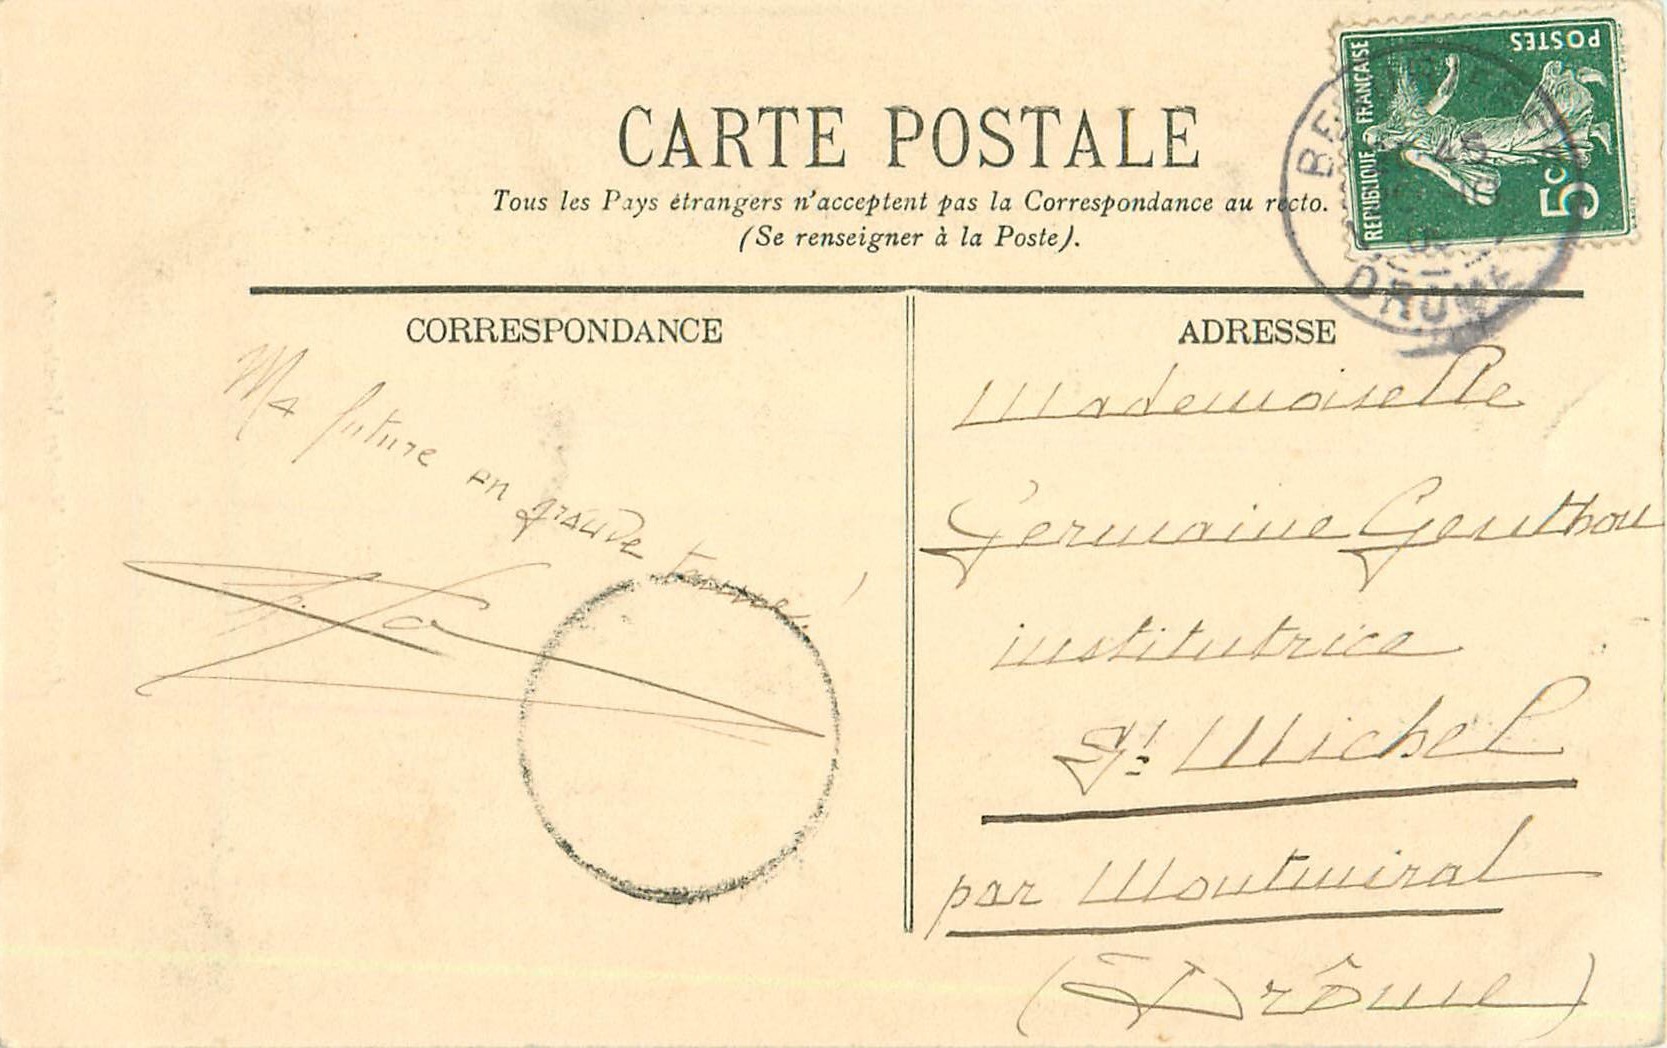 CARTE POSTALE
Tous les Pays étrangers n'acceptent pas la Correspondance au recto.
(Se renseigner à la Poste).
POSTES
RÉPUBLIQUE FRANÇAISE
5c
DROME
CORRESPONDANCE
Ma future en grande tenue!
ADRESSE
Mademoiselle
Germaine Genthon
institutrice
St Michel
par Montmiral
(Drôme)